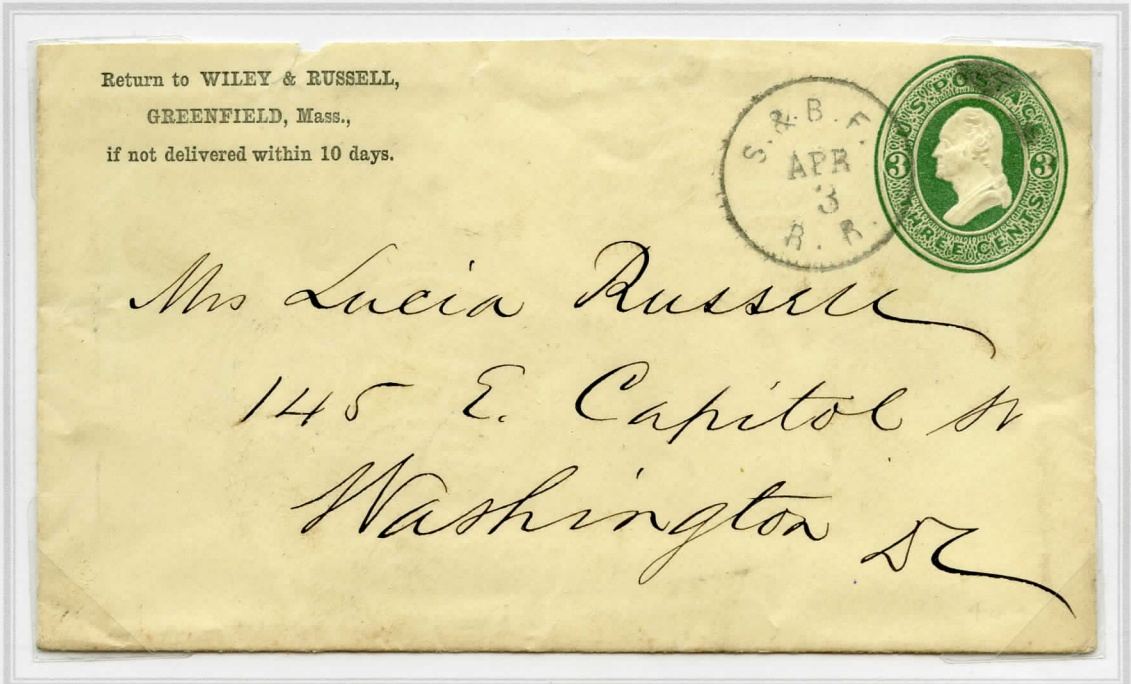 Return to WILEY & RUSSELL,
GREENFIELD, Mass.,
if not delivered within 10 days.
S. & B. F.
APR
3
R. R.
U.S. POSTAGE
3 3
THREE CENTS
Mrs Lucia Russell
145 E. Capitol St
Washington DC